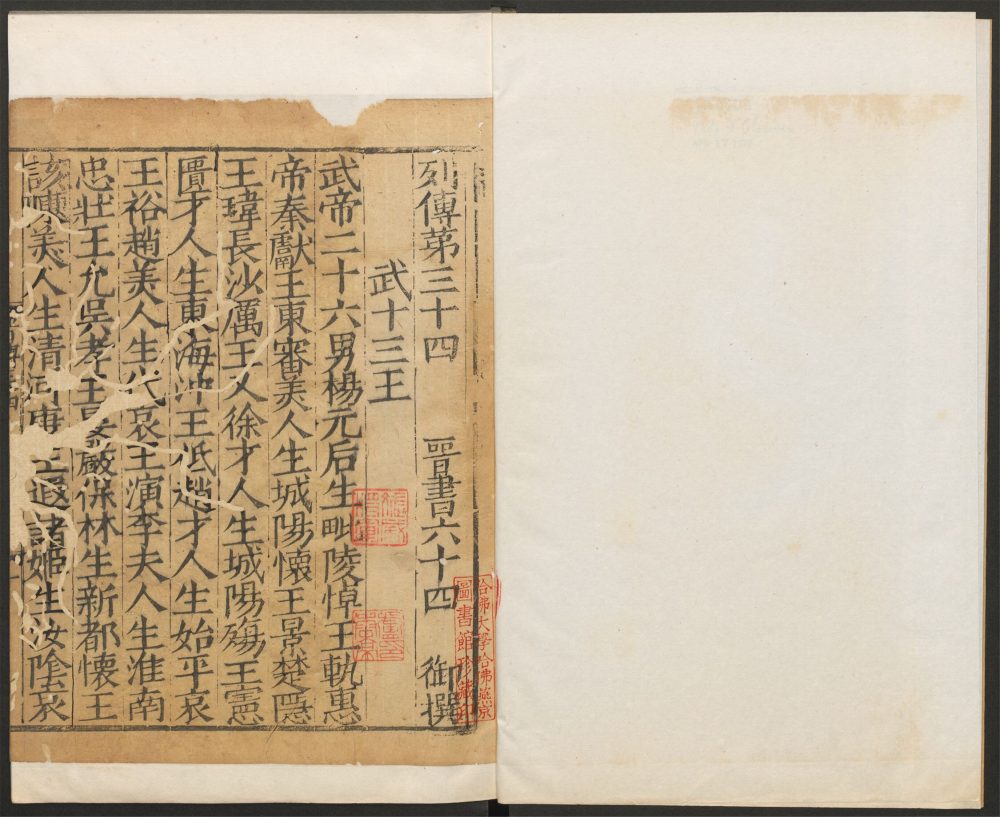 列傳第三十四 晉書六十四 御撰
武十三王
武帝二十六男楊元后生毗陵悼王軌惠
帝秦獻王柬審美人生城陽懷王景楚隱
王瑋長沙厲王乂徐才人生城陽殤王憲
匱才人生東海沖王祗趙才人生始平哀
王裕趙美人生代哀王演李夫人生淮南
忠壯王允吳孝王晏嚴保林生新都懷王
該陳美人生清河康王遐諸姬生汝陰哀
哈佛大學哈佛燕京
圖書館珍藏印